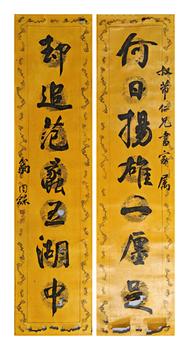 叔芾仁兄書家屬
何日揚雄一廛足
却追范蠡五湖中
翁同龢